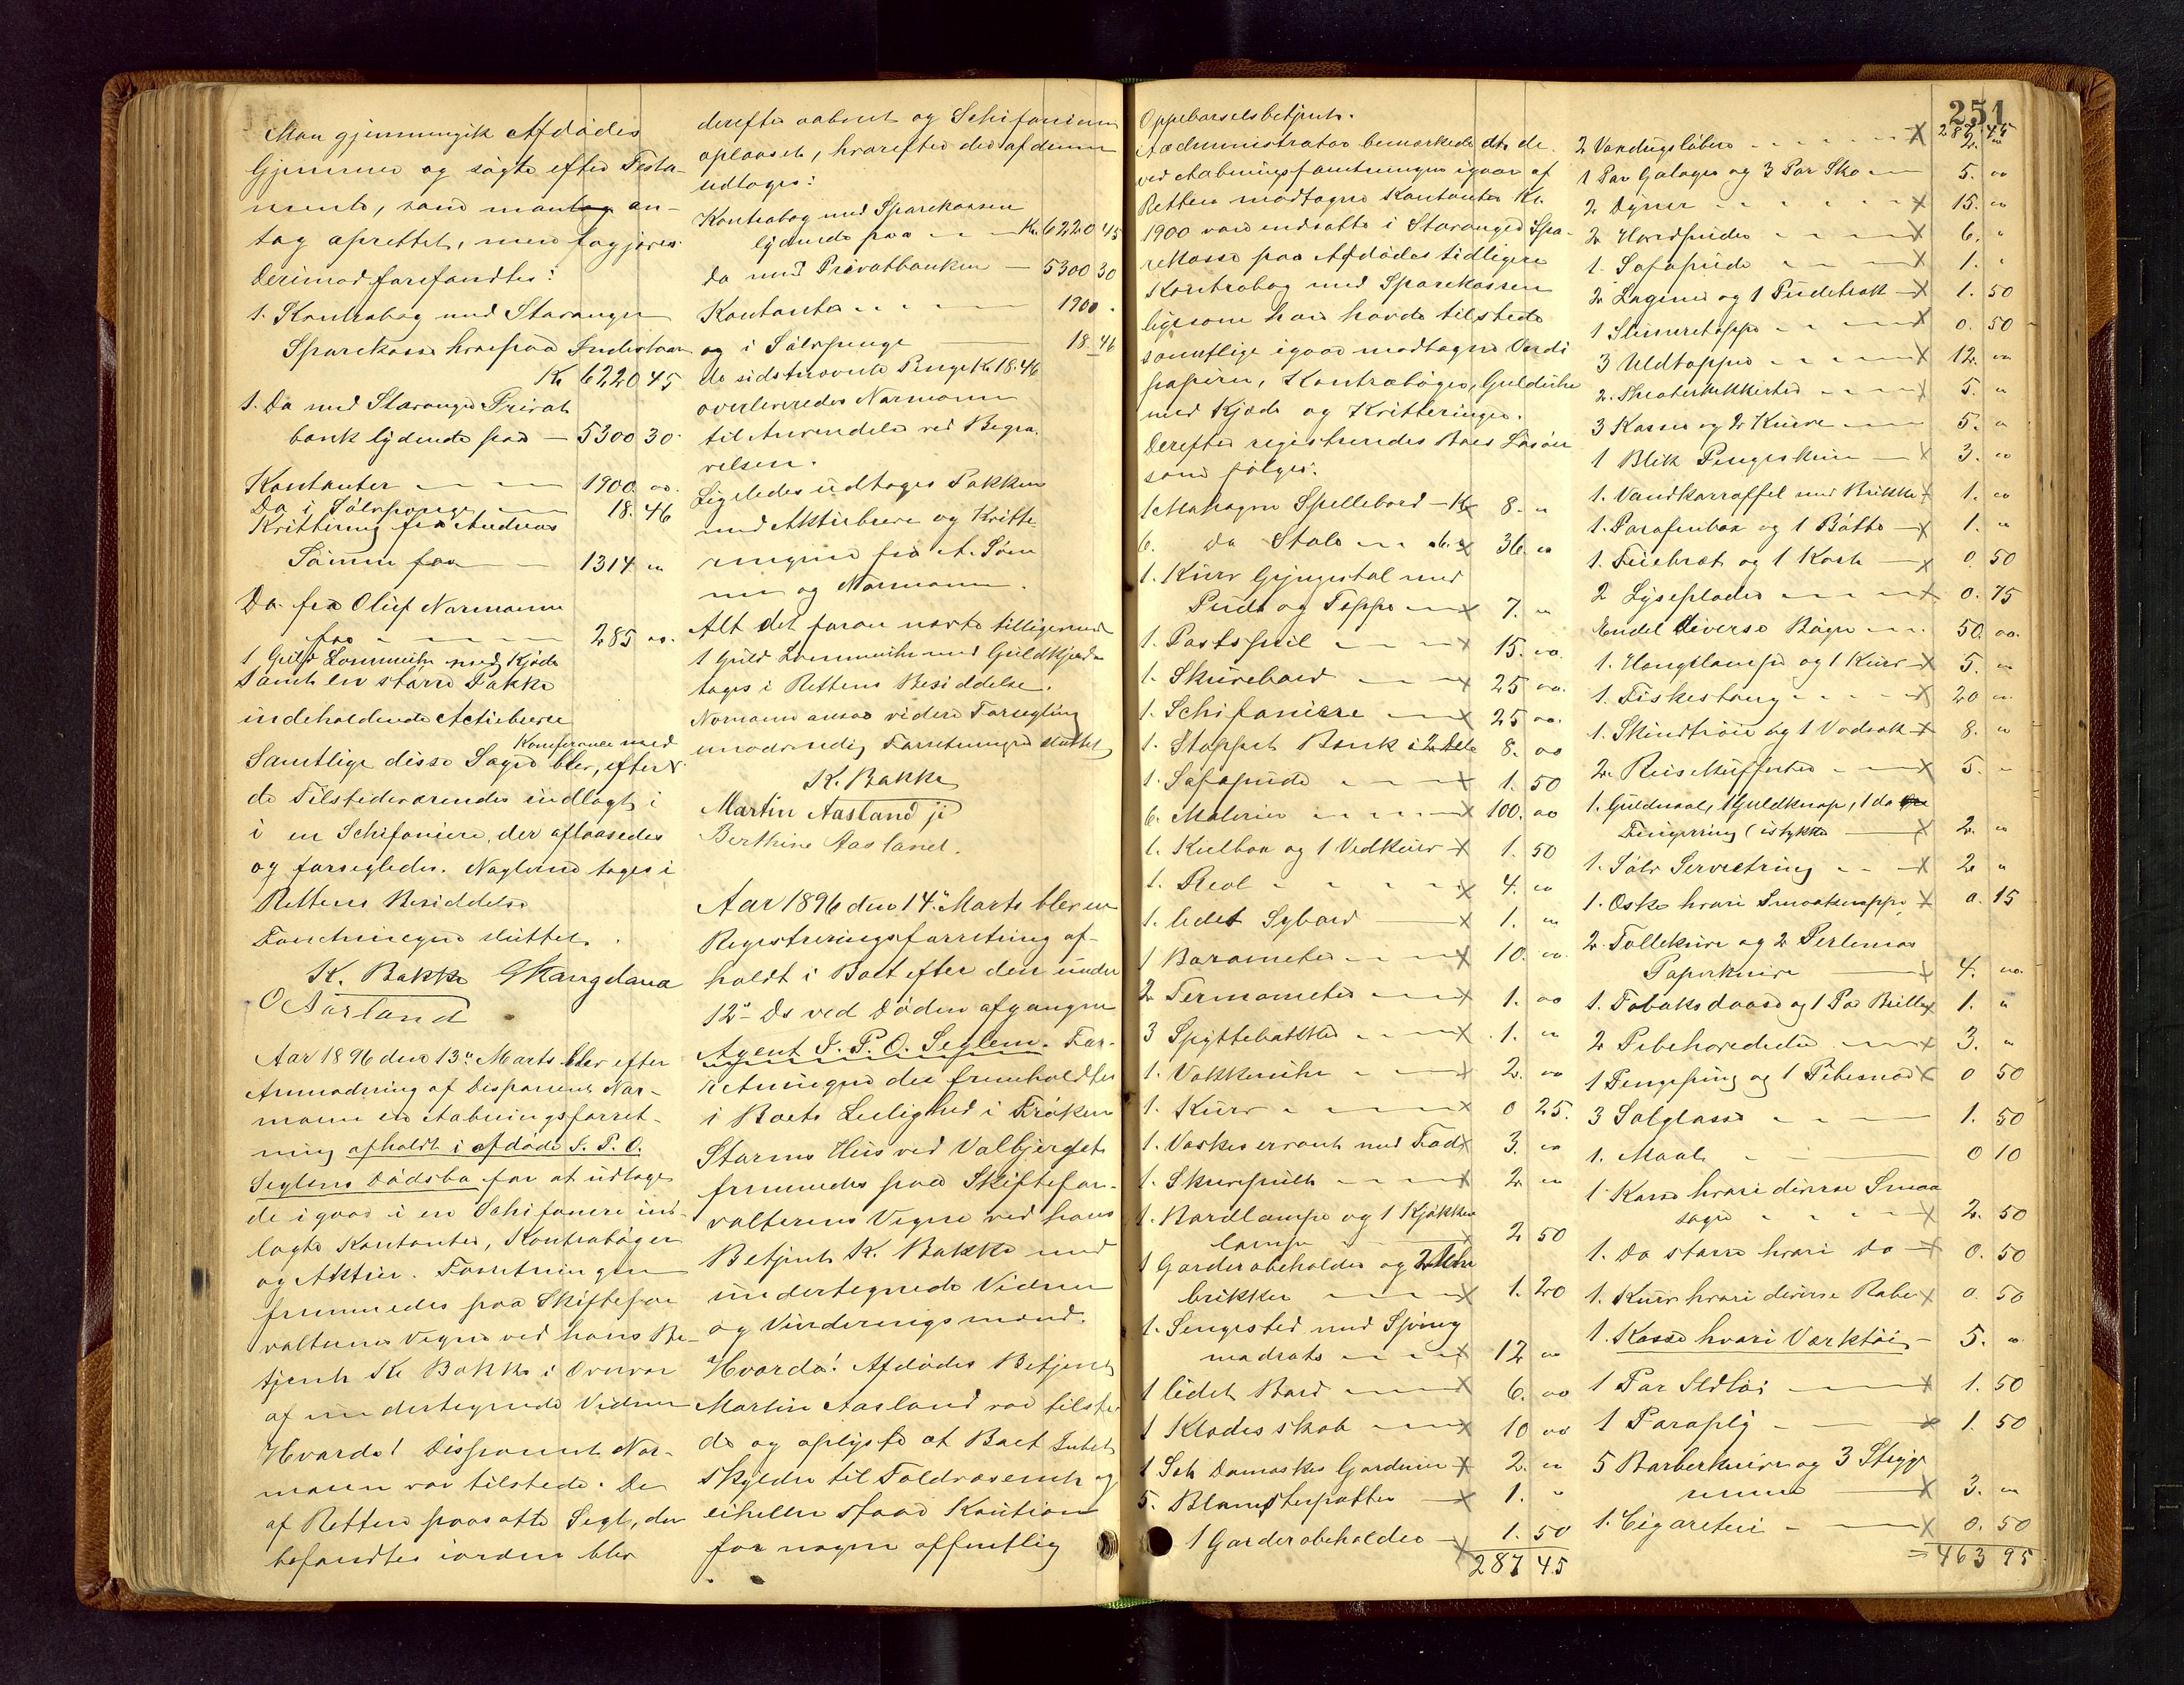 Man gjennemgik Afdødes
Gjemmer og søgte efter Testa-
mente, som man an-
tog oprettet, men
Derimod forefandtes:
1. Kontrabog med Stavanger
Sparekasse hvorpaa Indestaar
Kr 6220 45
1. Do med Stavanger Privat
bank lydende paa — 5300 30
Kontanter — 1900 00
Do i Sølvpenge — 18. 46
Kvittering fra Andreas
Sømme paa — 1314 00
Do fra Oluf Normann
paa — 285 00
1 Guld Lommeuhr med Kjæde
Samt en større Pakke
indeholdende Actiebreve
Samtlige disse Sager blev, efter Konferance med
de Tilstedeværende indlagt i
i en Schifoniere, der aflaasedes
og forsegledes. Nøglerne toges i
Rettens Besiddelse
Forretningen sluttet.
K. Bakke
O Aarland
Aar 1896 den 13de Marts blev efter
Anmodning af Disponent Nor-
mann en Aabningsforret-
ning afholdt i afdøde S. P. O.
Seglems Dødsbo for at udtage
de igaar i en Schifoniere ind-
lagte Kontanter, Kontrabøger
og Aktier. Forretningen
fremmedes paa Skiftefor
valterens Vegne ved hans Be-
tjent K. Bakke i Overvær
af undertegnede Vidner
Hvorda! Disponent Nor-
mann var tilstede. De
af Retten paasatte Segl, der
befandtes iorden blev
derefter aabnet og Schifonieren
oplaaset, hvorefter der af denne
udtoges:
Kontrabog med Sparekassen
lydende paa — Kr. 6220 45
Do med Privatbanken — 5300 30
Kontanter — 1900 .
og i Sølvpenge — 18. 46
de sidstnævnte Penge Kr 18.46
overleveredes Normann
til Anvendelse ved Begra-
velsen.
Ligeledes udtoges Pakken
med Aktiebreve og Kvitte-
ringerne fra A. Søm
me og Normann.
Alt det foran nævnte tilligemed
1 Guld Lommeuhr med Guldkjæde
toges i Rettens Besiddelse.
Normann ansaa videre Forsegling
unødvendig Forretningen sluttet
K. Bakke
Martin Aasland ji
Berthine Aasland.
Aar 1896 den 14de Marts blev en
Registreringsforretning af-
holdt i Boet efter den under
12te Ds ved Døden afgangne
Agent S. P. O. Seglem. For-
retningen der fremholdtes
i Boets Leilighed i Frøken
Storms Hus ved Valbjerget
fremmedes paa Skiftefor-
valterens Vegne ved hans
Betjent K. Bakke med
undertegnede Vidner
og Vurderingsmænd.
Hvorda! Afdødes Betjent
Martin Aasland var tilste
de og oplyste at Boet Intet
skylder til Toldvæsenet og
eiheller staar Kaution
for nogen offentlig
251
Oppebørselsbetjent.
Administrator bemærkede at de
ved Aabningsforretningen igaar af
Retten modtagne Kontanter Kr.
1900 vare indsatte i Stavanger Spa-
rekasse paa Afdødes tidligere
Kontrabog med Sparekassen
ligesom han havde tilstede
samtlige igaar modtagne Værdi
papirer, Kontrabøger, Gulduhr
med Kjæde og Kvitteringer.
Derefter registreredes Boets Løsøre
som følger:
1 Mahogni Spillebord — Kr 8. "
6. Do Stole — 36. 00
1. Kurv Gyngestol med
Pude og Teppe — x 7. "
1. Postspeil — x 15. 00
1. Skrivebord — x 25 00
1. Schifoniere — x 25 00
1. Stoppet Bænk i 2 Dele 8. 00
1. Sofapude — x 1. 50
6. Malerier — x 100. 00
1. Kulbox og 1 Vedkurv x 1. 50
1. Reol — x 4. 00
1. lidet Sybord — x 1. "
1 Barometer — x 10. 00
2 Termometer — x 1. 00
3 Spyttebakker — x 1. "
1. Vækkeuhr — x 2. 00
1. Kurv — x 0 25.
1. Vaskeservant med Fad x 3. 00
1. Skrivepult — x 2 "
1. Bordlampe og 1 Kjøkken
lampe — 2 50
1 Garderobeholder og 2 Uhr
brikker — x 1. 20
1. Sengested med Spring
madrats — x 12 00
1 lidet Bord — x 6. 00
1 Klædesskab — x 10 00
1 Set Damaskes Gardiner x 2. "
5. Blomsterpotter — x 1. "
1 Garderobeholder — x 1. 50
287 45
287 45
2 Vandugsløbere — x 2. "
1 Par Galoger og 3 Par Sko — 5. 00
2 Dyner — x 15. "
2 Hovedpuder — x 6. "
1. Sofapude — x 1. "
2 Lagener og 1 Pudetræk x 1. 50
1 Slumreteppe — x 0. 50
3 Uldtepper — x 12. 00
2. Theaterkikkerter — x 5. "
3 Kasser og 2 Kurve — 5. "
1 Blik Pengeskrin — x 3. 00
1. Vandkarraffel med Brikke x 1. 00
1. Parafinbox og 1 Bøtte — x 1. "
1. Feiebræt og 1 Kost — x 0. 50
2 Lyseplader — x 0. 75
Endel Diverse Bøger — 50. 00
1. Hængelampe og 1 Kurv x 5. "
1. Fiskestang — x 20 "
1. Skindtrøie og 1 Vadsæk x 8. "
2. Reisekufferter — x 5. "
1. Guldnaal, 1 Guldknap, 1 do
Fingerring (istykker — x 2. "
1. Sølv Serviettring — x 2 "
1. Æske hvori Smaaknapper x 0. 15
2. Follekniver og 2 Perlemor
Papirkniver — x 4. 00
1. Tobaksdaase og 1 Par Briller x 1. "
2 Pibehoveder — x 3. "
1 Pengepung og 1 Pibesnor x 0 50
3 Solglasse — 1. 50
1. Maal — 0 10
1 Kasse hvori diverse Smaa
sager — x 2. 50
1. Do større hvori Do — x 0. 50
1. Kurv hvori diverse Rabe x 0. 50
1. Kasse hvori Værktøi — 5. "
1 Par Ildtøi — x 1. 50
1 Paraply — x 1. 50
5 Barberknive og 3 Stryge
remme — x 3. "
1. Cigaretteri — x 0. 50
= 463 95